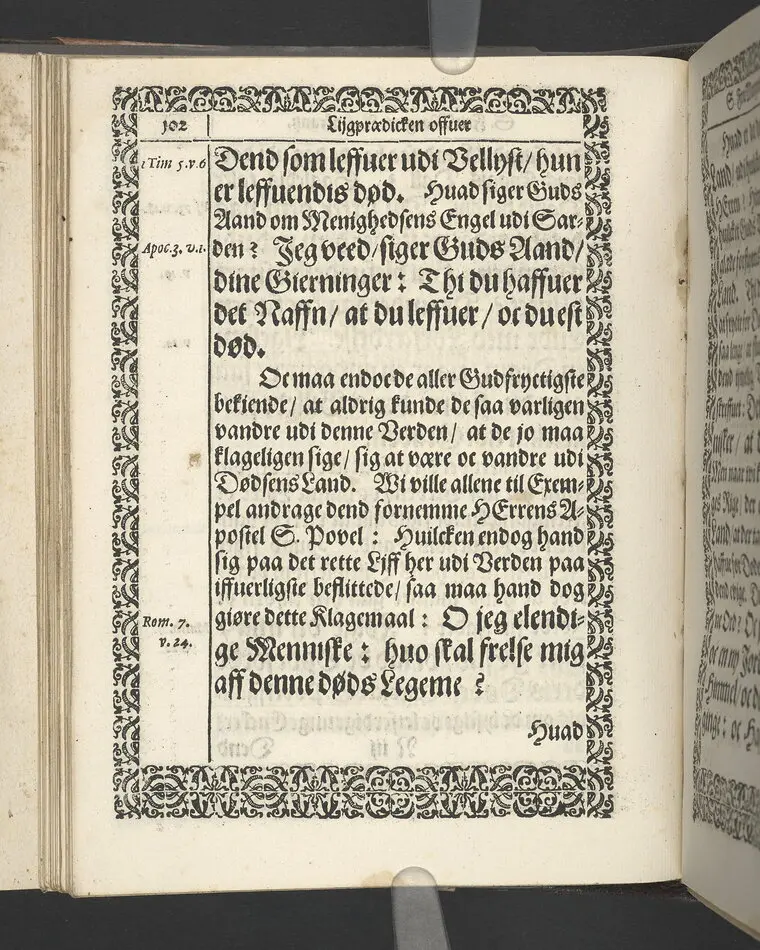 102
Lijgprædicken offuer
1 Tim 5. v. 6
Dend som leffuer udi Vellyst/ hun
er leffuendis død. Huad siger Guds
Aand om Menighedsens Engel udi Sar-
Apoc. 3. v. 1.
den? Jeg veed/ siger Guds Aand/
dine Gierninger: Thi du haffuer
det Naffn/ at du leffuer/ oc du est
død.
Oc maa endoc de aller Gudfryctigste
bekiende/ at aldrig kunde de saa varligen
vandre udi denne Verden/ at de jo maa
klageligen sige/ sig at være oc vandre udi
Dødsens Land. Wi ville allene til Exem-
pel andrage dend fornemme HErrens A-
postel S. Povel: Huilcken endog hand
sig paa det rette Liff her udi Verden paa
iffuerligste beflittede/ saa maa hand dog
Rom. 7.
v. 24.
giøre dette Klagemaal: O jeg elendi-
ge Menniske: huo skal frelse mig
aff denne døds Legeme?
Huad